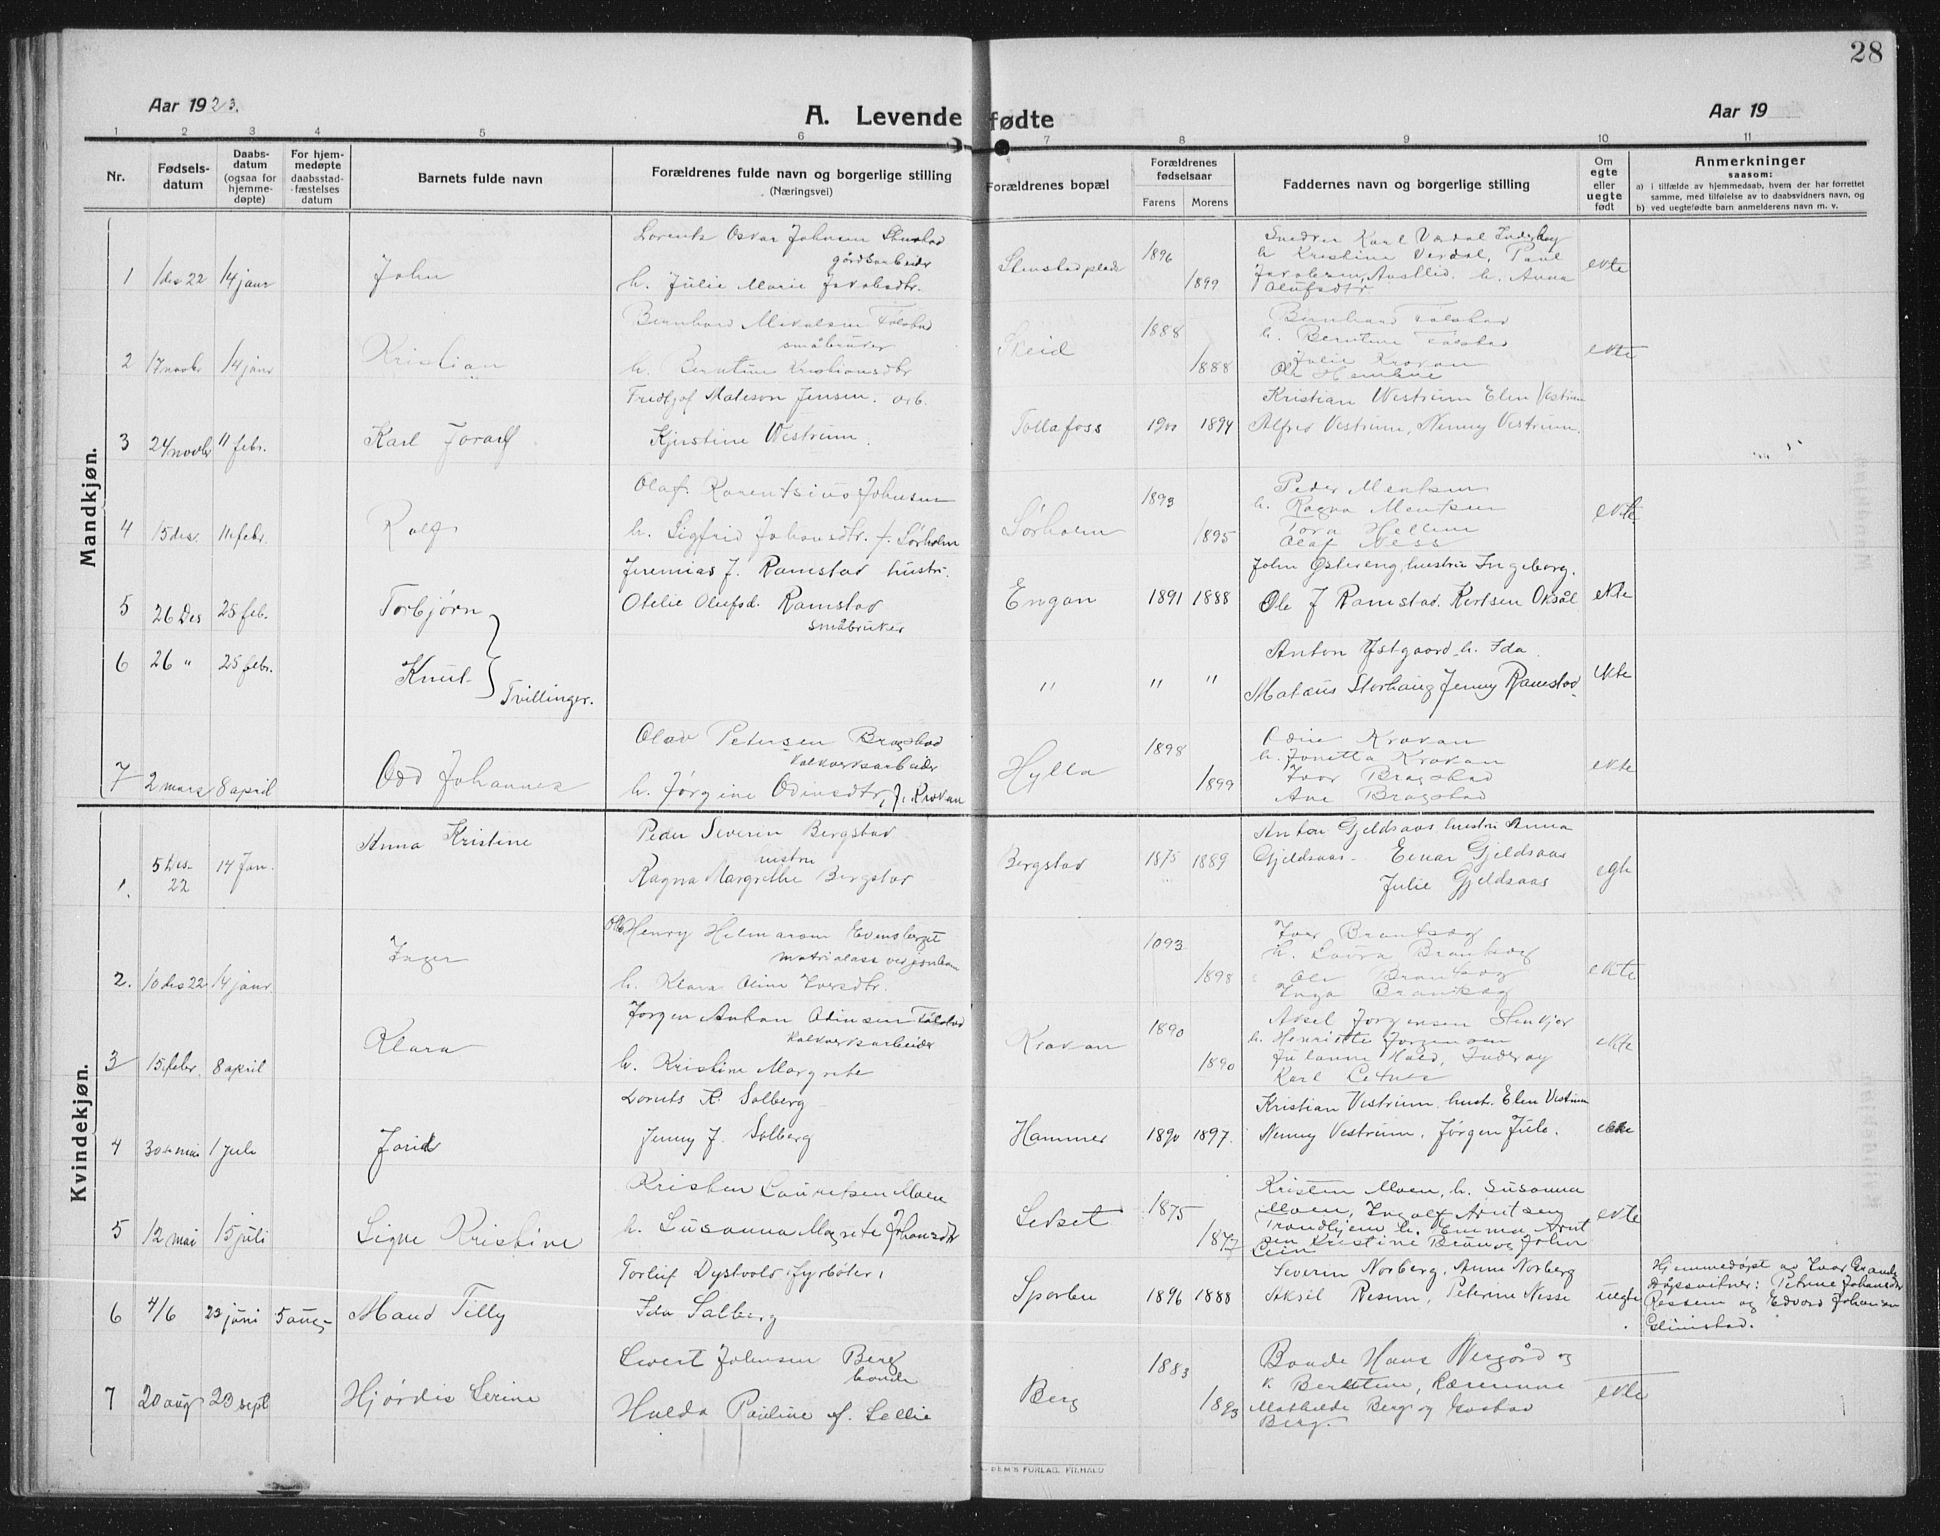 28
Aar 1923.
A. Levende fødte
Aar 19
1 2 3 4 5 6 7 8 9 10 11
Nr.
Fødsels-
datum
Daabs-
datum
(ogsaa for
hjemme-
døpte)
For hjem-
medøpte
daabsstad-
fæstelses
datum
Barnets fulde navn
Forældrenes fulde navn og borgerlige stilling
(Næringsvei)
Forældrenes bopæl
Forældrenes
fødselsaar
Farens Morens
Faddernes navn og borgerlige stilling
Om
egte
eller
uegte
født
Anmerkninger
saasom:
a) i tilfælde av hjemmedaab, hvem der har forrettet
samme, med tilføielse av to daabsvidners navn, og
b) ved uegtefødte barn anmelderens navn m. v.
Mandkjøn.
1 1 des 22 14 janr John
Lorents Oskar Johnsen Stenstad
gårdsarbeider
h. Julie Marie Jakobsdtr.
Stenstadplads 1896 1899
Snedker Karl Verdal Inderøy
h Kristine Verdal, Paul
Jakobsen Austlid. h. Anna
Olufsdtr.
ekte
2 17 novbr 14 janr Kristian
Bernhard Mikalsen Følstad
småbruker
h. Berntine Kristiansdtr
Skeid 1888 1888
Bernhard Følstad
h. Berntine Følstad
Julie Krovan
ekte
3 24 novbr 11 febr. Karl Foralf
Fridtjof Mateson Jensen. arb.
Kjerstine Westrum.
Follafoss 1900 1894
Kristian Westrum Elen Vestrum
Alfred Vestrum, Nenny Vestrum.
4 15 des. 11. febr. Rolf
Olaf Korentsius Johnsen
h. Sigfrid Johansdtr. f. Sørholm
Sørholm 1893 1895
Peder Mentsen
h. Ragna Mentsen
Tora Hellem
Olaf Ness
ekte
5 26 Des 25 feb. Torbjørn
Jeremias J. Ramstad hustru.
Otelie Olufsd. Ramstad
småbruker
Engan 1891 1888
John Østereng, hustru Ingeborg.
Ole J Ramstad. Kertsen Oksål
ekte
6 26 " 25 febr. Knut Tvillinger.
" " "
Anton Østgaard h. Ida.
Mateus Storhaug Jenny Ramstad
ekte
7 2 mars 8 april Odd Johannes
Olav Petersen Bragstad
Kalkverksarbeider
h. Jørgine Odinsdtr, f. Krovan
Hylla 1898 1899
Odin Krovan
h. Jonetta Krovan
Ivar Bragstad
Ane Bragstad
ekte
Kvindekjøn.
1. 5 Des- 22 14 Jan. Anna Kristine
Peder Severin Bergstad
hustru
Ragna Margrethe Bergstad
Bergstad 1875 1889
Anton Gjeldsaas, hustru Anna
Gjeldsaas- Einar Gjeldsaas
Julie Gjeldsaas
egte
2. 10 des 22 14 janr. Inger
Ole Henry Helmarson Evensberget
matrialass ved jernban
h. Klara Oline Iversdtr.
1093 1898
Iver Brantsæg
h. Laura Brantsæg
Ole Brantsæg
Inga Brantsæg
ekte
3 15. febr. 8 april Klara
Jørgen Anton Odinsen Følstad
Kalkverksarbeider
h. Kristine Margrete
Krovan 1890 1890
Aksel Jørgensen Stenkjer
h. Henriette Jørgensen
Julanne Hald, Inderøy
Karl Letnes
ekte
4 30te mai 1 juli Jorid
Lornts K. Solberg
Jenny J. Solberg
Hammer 1890 1897.
Kristian Vestrum, hustr. Elen Vestrum
Nenny Vestrum, Jørgen Jule.
ekte
5 12 mai 15 juli Signe Kristine
Kristen Lauritsen Moen
h. Susanna Magrete Johansdtr
Lekset 1875 1877
Kristen Moen, h. Susanna
Moen, Ingolf Arntsen
Trondhjem h. Emma Arnt
sen Kristine Brun og John
Lein
ekte
6 4/6 23 juni 5 aug- Maud Tilly
Torluf Dystvold, fyrbøter,
Ida Salberg
Sparbu 1896 1888
Severin Norberg, Anne Norberg
Aksel Resem, Peterine Nesse
uegte.
Hjemmedøpt av Ivar Grande
Døpsvitner: Petrine Johansdtr
Ressem og Edvard Johansen
Glimstad.
7 20 aug 23 sept Hjørdis Serine
Sivert Johnsen Berg
bonde
Hulda Pauline f. Lellie
Berg 1883 1893
Bonde Hans Wergård og
k Berntine,
Mathilde Berg og Gustav
Berg.
ekte
FORLAG, FR.HALD